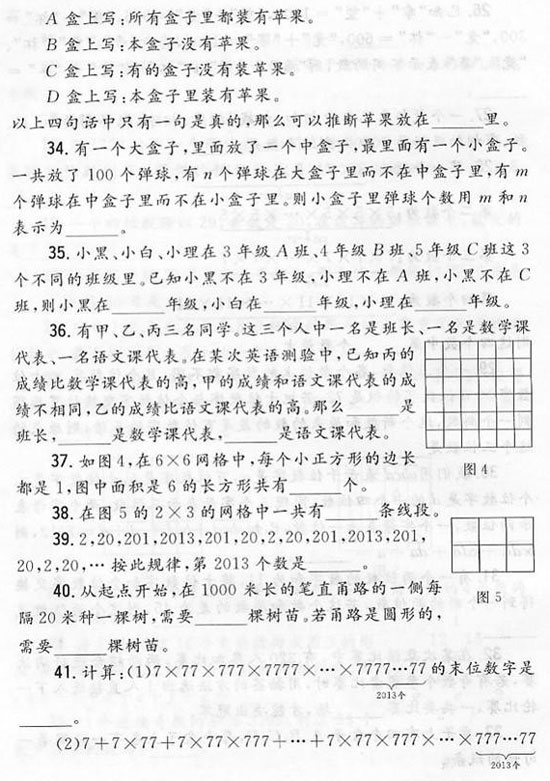 A 盒上写:所有盒子里都装有苹果。
B 盒上写:本盒子没有苹果。
C 盒上写:有的盒子没有装苹果。
D 盒上写:本盒子里装有苹果。
以上四句话中只有一句是真的,那么可以推断苹果放在______里。
34. 有一个大盒子,里面放了一个中盒子,最里面有一个小盒子。
一共放了 100 个弹球,有 n 个弹球在大盒子里而不在中盒子里,有 m
个弹球在中盒子里而不在小盒子里。则小盒子里弹球个数用 m 和 n
表示为______。
35. 小黑、小白、小理在 3 年级 A 班、4 年级 B 班、5 年级 C 班这 3
个不同的班级里。已知小黑不在 3 年级,小理不在 A 班,小黑不在 C
班,则小黑在______年级,小白在______年级,小理在______年级。
36. 有甲、乙、丙三名同学。这三个人中一名是班长、一名是数学课
代表、一名语文课代表。在某次英语测验中,已知丙的
成绩比数学课代表的高,甲的成绩和语文课代表的成
绩不相同,乙的成绩比语文课代表的高。那么______是
班长,______是数学课代表,______是语文课代表。
图 4
37. 如图 4,在 6×6 网格中,每个小正方形的边长
都是 1,图中面积是 6 的长方形共有______个。
38. 在图 5 的 2×3 的网格中一共有______条线段。
39. 2,20,201,2013,201,20,2,20,201,2013,201,
20,2,20,… 按此规律,第 2013 个数是______。
40. 从起点开始,在 1000 米长的笔直甬路的一侧每
隔 20 米种一棵树,需要______棵树苗。若甬路是圆形的,
图 5
需要______棵树苗。
41. 计算:(1)7×77×777×7777×…×7777…77 的末位数字是
2013个
______。
(2)7+7×77+7×77×777+…+7×77×777×…×777…77
2013个